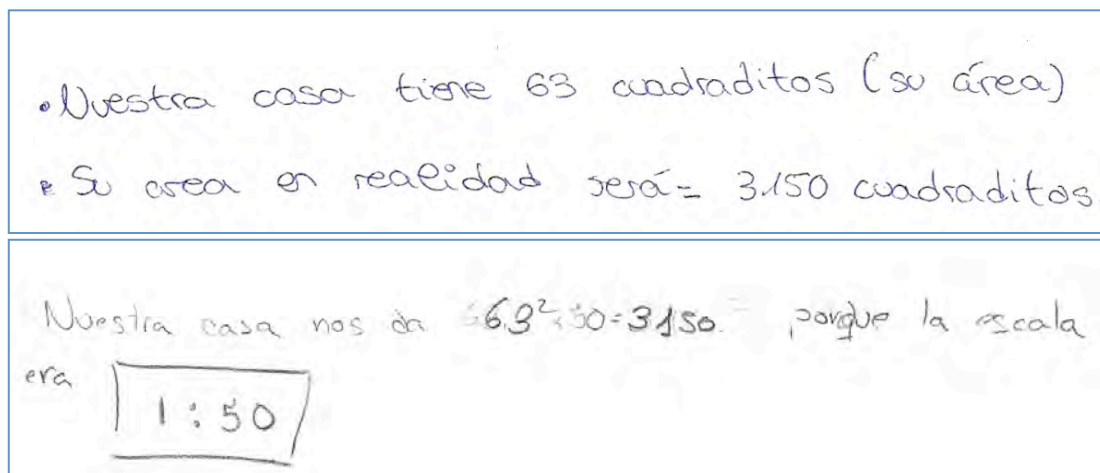 • Nuestra casa tiene 63 cuadraditos (su área)
• Su area en realidad será = 3.150 cuadraditos.
Nuestra casa nos da 63²·50=3150 porque la escala
era
1:50